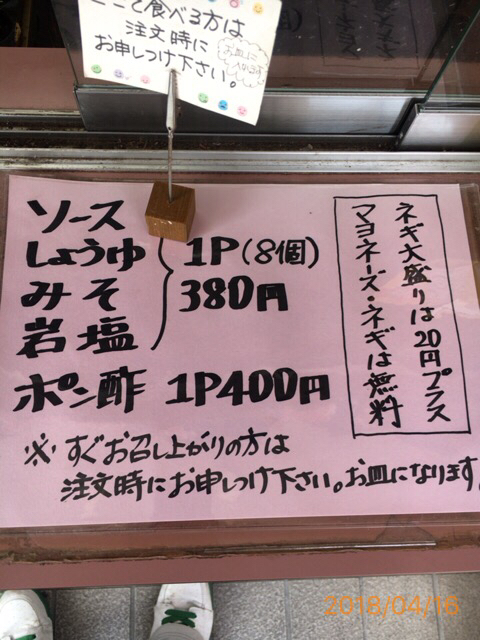 ここで食べる方は
注文時に
お申しつけ下さい。
お皿に
入れます
ソース
しょうゆ
みそ
岩塩
1P(8個)
380円
ポン酢 1P400円
ネギ大盛りは20円プラス
マヨネーズ・ネギは無料
※すぐお召し上がりの方は
注文時にお申しつけ下さい。お皿になります。
2018/04/16